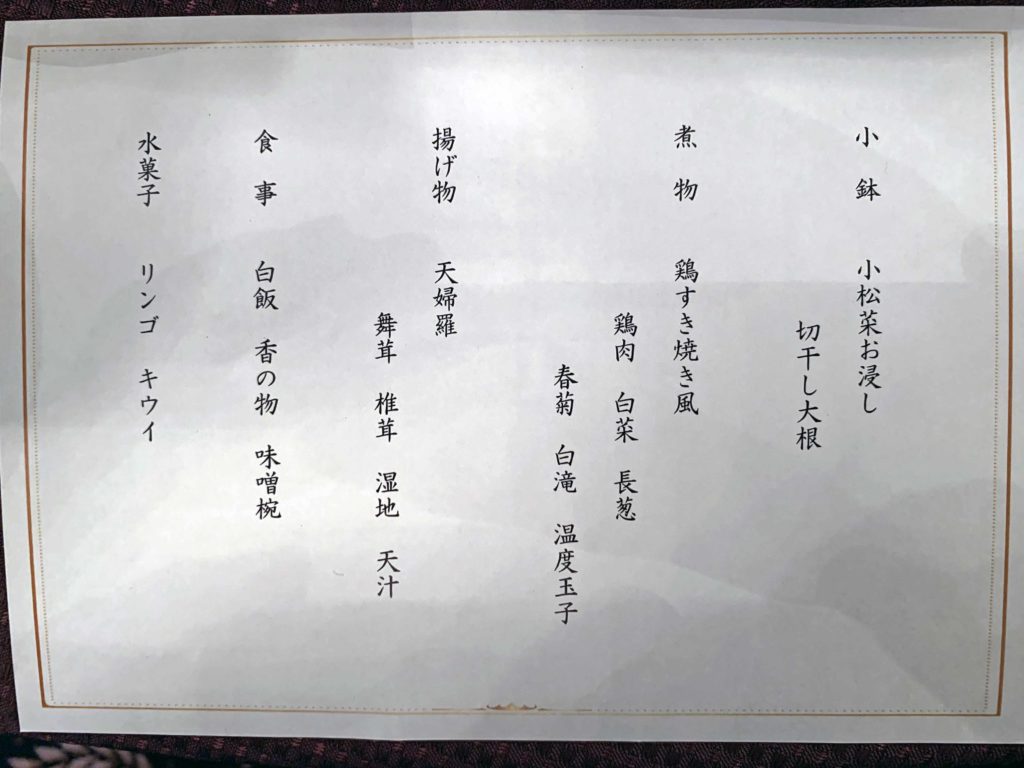 小鉢　小松菜お浸し
切干し大根
煮物　鶏すき焼き風
鶏肉　白菜　長葱
春菊　白滝　温度玉子
揚げ物　天婦羅
舞茸　椎茸　湿地　天汁
食事　白飯　香の物　味噌椀
水菓子　リンゴ　キウイ